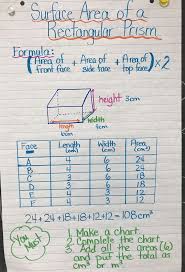 Surface Area of a
Rectangular Prism
Formula:
(Area of front face + Area of side face + Area of top face) × 2
height 3cm
width
length
Face Length (cm) Width (cm) Area
A 4 6 24
4 6 24
3 6 18
3 6 18
E 12
F 12
24+24+18+18+12+12=108cm²
You Must:
1. Make a chart.
2. Complete the chart.
3. Add all the areas (6)
and put the total as
cm² or m².